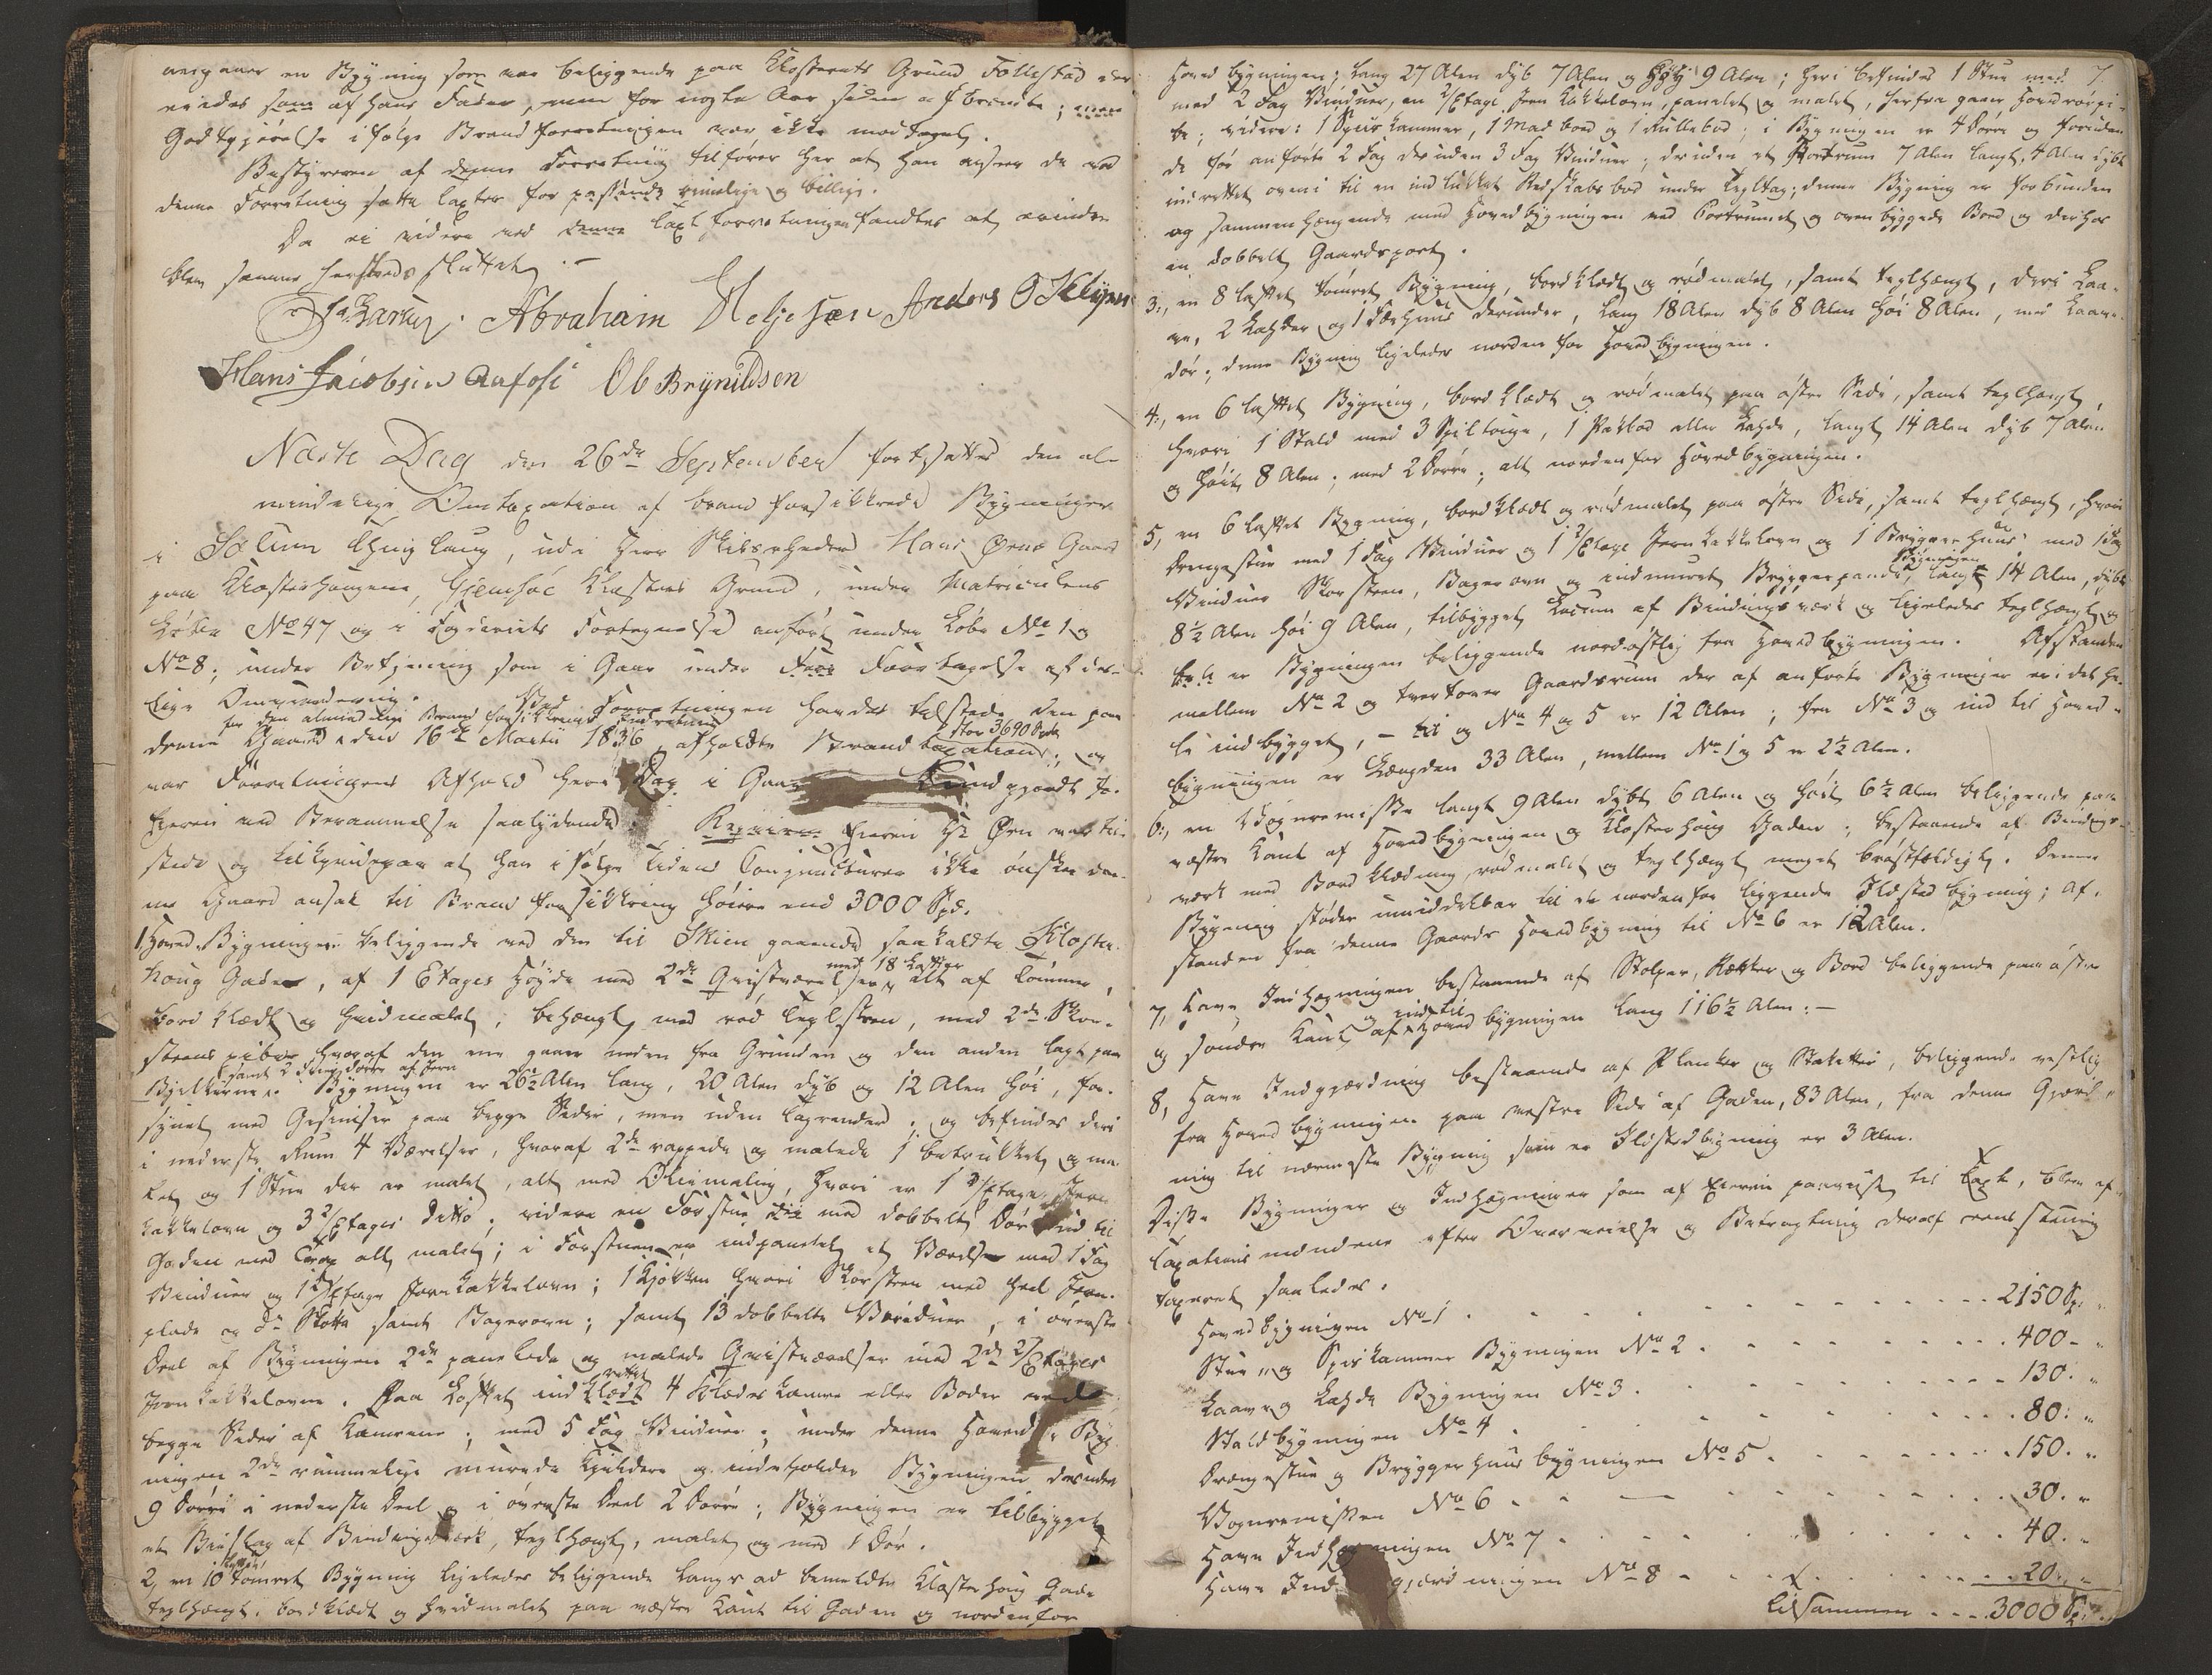 en Bygning som var beliggende paa Klosterets Grund Follestad der
eiedes som af hans Fader, men for nogle Aar siden afbrændte; men
Godtgjørelse ifølge Brandforretningen var ikke modtaget.
Bestyreren af denne Forretning tilfører her at han anseer de ved
denne Forretning satte Taxter for passende rimelige og billige.
Da ei videre ved denne Taxtforretningen fandtes at erindre
blev samme hersteds sluttet.-
Abraham Heljesen Anders O Klyve
Hans Jacobsen Aafos Ob Brynildsen
Næste Dag den 26de September fortsattes den al-
mindelige Omtaxation af brandforsikkrede Bygninger
i Solum Thinglaug, udi Herr Skibsrheder Hans Ørns Gaard
paa Klosterhougene, Gjemsøe Klosters Grund, under Matriculens
Løbe No 47 og i Fogderiets Fortegnelse anført under Løbe No 1 og
No 8; under Betjening som i Gaar under Foretagelse af der-
lige Omvurdering. Ved Forretningen havdes tilstede den paa
for den almindelige Brandforsikrings Indretning
denne Gaard den 16de Martii 1836 afholdte Brandtaxation, stor 3690 Spd; og
var Forretningens Afhold her i Dag i Gaar Kundgjordt for
Eieren ved Berammelse saalydende: Eieren Hr Ørn var til-
stede og tilkjendegav at han ifølge Tidens Conjuncturer ikke ønsker den-
ne Gaard ansat til Brandforsikkring høiere end 3000 Spd.
1, Hoved-Bygningen beliggende ved den til Skien gaaende saakaldte Kloster-
houg Gade, af 1 Etages Høyde med 2de Qvistværelser, med 18 Lafter alt af Tømmer,
bordklædt og hvidmalet, behængt med rød Teglsteen, med 2de Skor-
steenspiber hvoraf den ene gaaer neden fra Grunden og den anden lagt paa
Bjelkerne. samt 2 Døre af Jern Bygningen er 26½ Alen lang, 20 Alen dyb og 12 Alen høi, for-
synet med Gesimser paa begge Sider, men uden Tagrender, og befindes deri
i nederste Rum 4 Værelser, hvoraf 2de rappede og malede 1 betrukket og ma-
let og 1 Stue der er malet, alt med Oliemaling, hvori er 1 3/Etages Jern-
kakkelovn og 3 2/Etages ditto; videre en Forstue med dobbelt Dør ud til
Gaden med Trap alt malet; i Forstuen er indpanelet et Værelse med 1 Fag
Vinduer og 1 2/Etage Jernkakkelovn; 1 Kjøkken hvori Skorsteen med heel Jern-
plade og do Støtte samt Bagerovn; samt 13 dobbelte Vinduer, i øverste
Deel af Bygningen 2de panelede og malede Qvistværelser med 2de 2/Etages
Jernkakkelovne. Paa Loftet indrettet 4 Klædeskamre eller Boder ved
begge Sider af Kamrene; med 5 Fag Vinduer; under denne Hoved-Byg-
ningen 2de rummelige murede Kjeldere og indeholder Bygningen desuden
9 Dørre i nederste Deel og i øverste Deel 2 Dørre; Bygningen er tilbygget
et Bislag af Bindingsværk, teglhængt, malet og med 1 Dør.
2, en 10 laftet Tømret Bygning ligeledes beliggende langs ad bemeldte Klosterhoug Gade
teglhængt, bordklædt og hvidmalet paa vestre Kant til Gaden og nordenfor
Hovedbygningen; lang 27 Alen dyb 7 Alen og høy 9 Alen; heri befindes 1 Stue med
med 2 Fag Vinduer, en 2/Etage Jern Kakkelovn, panelet og malet,
videre: 1 Spiiskammer, 1 Madbod og 1 Rullebod; i Bygningen er 4 Dørre og foruden
de før anførte 2 Fag desuden 3 Fag Vinduer; desuden et Portrum 7 Alen langt, 4 Alen dybt
indrettet oveni til en indlukket Redskabsbod under Tegltag; denne Bygning er forbunden
og sammenhængende med Hovedbygningen ved Portrummet og ovenbyggede Bord og derhos
en dobbelt Gaardsport.
3:, en 8 laftet tømret Bygning, bordklædt og rødmalet, samt teglhængt, deri Laa-
ve, 2 Ladder og 1 Fæehuus derunder, lang 18 Alen dyb 8 Alen høi 8 Alen, med Laave-
dør; denne Bygning ligeledes norden for Hovedbygningen.
4:, en 6 laftet Bygning, bordklædt og rødmalet paa østre Side, samt teglhængt,
hvori 1 Stald med 3 Spiltouge, 1 Pakbod eller Ladde, langt 14 Alen dyb 7 Alen
og høit 8 Alen; med 2 Dørre; alt norden for Hovedbygningen.
5, en 6 laftet Bygning, bordklædt og rødmalet paa østre Side, samt teglhængt, hvori
Drengestue med 1 Fag Vinduer og 1 2/Etage Jernkakkelovn og 1 Bryggerhuus med 1 Fag
Vinduer Skorsteen, Bagerovn og indmuret Bryggerpande, Bygningen langt 14 Alen, dybt
8½ Alen høi 9 Alen, tilbygget af Bindingsværk og ligeledes teglhængt og
er Bygningen beliggende nordostlig fra Hovedbygningen. Afstanden
mellem No 2 og tvertover Gaardsrum der af anførte Bygninger er i det he-
le indbygget, - til og No 4 og 5 er 12 Alen; fra No 3 og ind til Hoved-
bygningen er Længden 33 Alen, mellem No 1 og 5 er 2½ Alen.
6:, en Vognremisse langt 9 Alen dybt 6 Alen og høit 6½ Alen beliggende paa
vestre Kant af Hovedbygningen og Klosterhoug Gaden; bestaaende af Bindings-
værk med Bordklædning rødmalet og teglhængt meget brøstfældigt. Denne
Bygning støder umiddelbar til de nordenfor liggende Ildsted bygning; Af-
standen fra denne Gaards Hovedbygning til No 6 er 12 Alen.
7, Have Indhegningen bestaaende af Stolper, Rækker og Bord beliggende paa østre
og søndre Kant af og ind til Hovedbygningen lang 116½ Alen:-
8, Have Indgjærdning bestaaende af Planker og Stakitter, beliggende vestlig
fra Hovedbygningen paa vestre Side af Gaden, 83 Alen, fra denne Gjærd-
ning til nærmeste Bygning som er Ildstedbygning er 3 Alen.
Disse Bygninger og Indhegninger som af Eieren paaviist til Taxt, blev af
Taxationsmændene efter Overveielse og Betragtning deraf eenstemmig
taxeret saaledes:
Hovedbygningen No 1 . . . . . 2150 Sp.
Stue og Spiskammer Bygningen No 2 . . . . . 400 -
Laave og Ladde Bygningen No 3 . . . . . 130. "
Staldbygningen No 4 . . . . . 80: "
Drengestue og Bryggerhuus bygningen No 5 . . . . . 150. "
Vognremissen No 6 . . . . . 30. "
Have Indhegningen No 7 . . . . . 40. "
Have Indgjærdningen No 8 . . . . . 20. "
Tilsammen . . . . 3000 Sp.